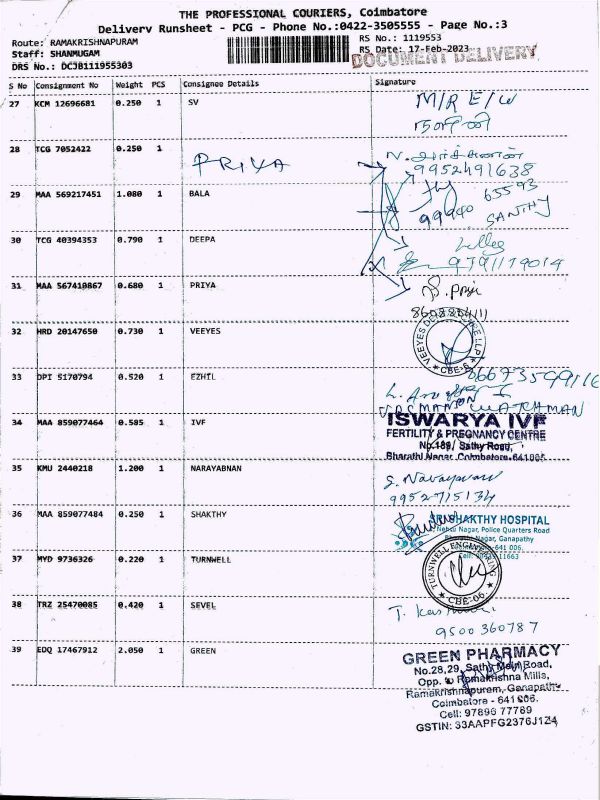 THE PROFESSIONAL COURIERS, Coimbatore
Delivery Runsheet - PCG - Phone No.:0422-3505555 - Page No.:3
Route: RAMAKRISHNAPURAM
Staff: SHANMUGAM
DRS No.: DCJB111955303
RS No.: 1119553
RS Date: 17-Feb-2023
DOCUMENT DELIVERY
S No Consignment No Weight PCS Consignee Details Signature
27 KCM 12696681 0.250 1 SV
M/R E/W
28 TCG 7052422 0.250 1
PRIYA
9952491638
29 MAA 569217451 1.080 1 BALA
65593
99940 SANTHY
30 TCG 40394353 0.790 1 DEEPA
9791179014
31 MAA 567410867 0.680 1 PRIYA
32 HRD 20147650 0.730 1 VEEYES
CBE-6
33 DPI 5170794 0.520 1 EZHIL
WATCHMAN
34 MAA 859077464 0.585 1 IVF
ISWARYA IVF
FERTILITY & PREGNANCY CENTRE
No.189, Sathy Road,
Bharathi Nagar, Coimbatore-641006
35 KMU 2440218 1.200 1 NARAYABNAN
S. Narayanan
9952715134
36 MAA 859077484 0.250 1 SHAKTHY
SHAKTHY HOSPITAL
Nehru Nagar, Police Quarters Road
Bharathi Nagar, Ganapathy
641 006.
11663
37 MYD 9736326 0.220 1 TURNWELL
TURNWELL ENGINEERING
CBE-06
38 TRZ 25470085 0.420 1 SEVEL
9500360787
39 EDQ 17467912 2.050 1 GREEN
GREEN PHARMACY
No.28,29, Sathy Main Road,
Opp. to Ramakrishna Mills,
Ramakrishnapuram, Ganapathy
Coimbatore - 641 006.
Cell: 97896 77769
GSTIN: 33AAPFG2376J1Z4